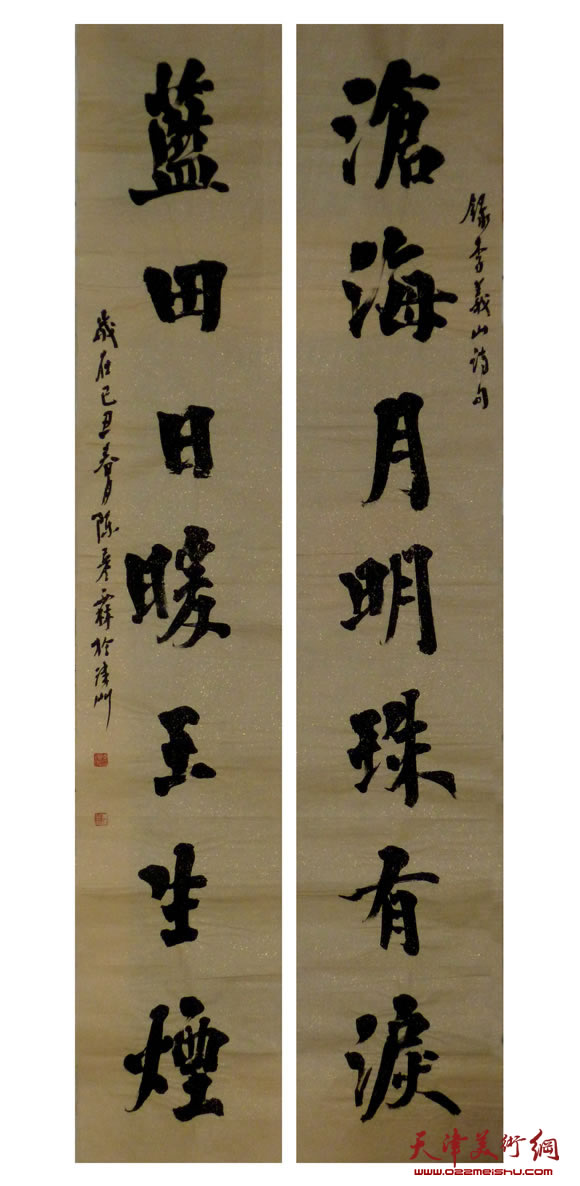 録李義山诗句
滄海月明珠有淚
藍田日暖玉生煙
歲在己丑春月陈彦霖於津门
天津美術網
www.022meishu.com